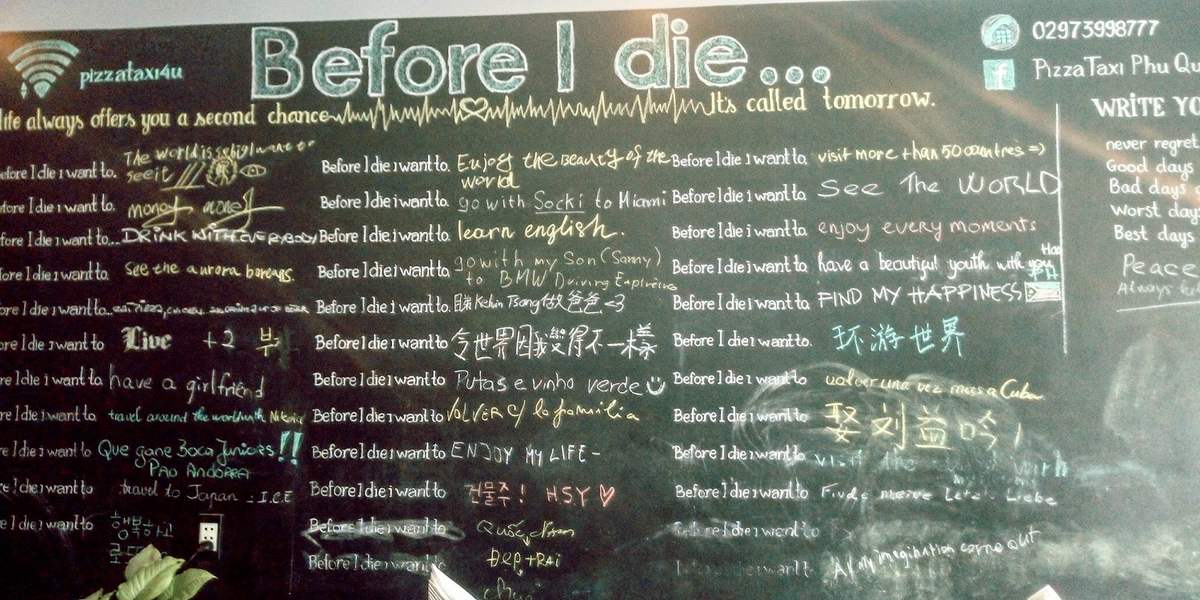 pizzataxi4u
Before I die...
02973998777
PizzaTaxi Phu Qu
life always offers you a second chance
It's called tomorrow.
WRITE YO
never regret
Good days
Bad days
Worst day
Best days
Peace
Always
efore I die I want to. The world is so big I want to
see it
efore I die I want to. money money
efore I die I want to... DRINK WITH EVERYBODY
efore I die I want to. See the aurora boreans.
efore I die I want to...
ore I die I want to Live +2 부
re I die I want to have a girlfriend
re I die I want to travel around the world with
e I die I want to Que gane Boca Juniors!!
PAO ANDORRA
e I die I want to travel to Japan - I.C.E
e I die I want to 행복하고
Before I die I want to. Enjoy the Beauty of the
world
Before I die I want to. go with Socki to Miami
Before I die I want to. learn english.
Before I die I want to. go with my Son (Sanny)
to BMW Driving
Before I die I want to. 睇 Kelvin Tsang 做爸爸 <3
Before I die I want to 令世界因我變得不一樣
Before I die I want to Putas e vinho verde
Before I die I want to VOLVER c/ la familia
Before I die I want to ENJOY MY LIFE -
Before I die I want to 건물주! HSY
Before I die I want to Quốc
Before I die I want to ĐẸP + RAI
Before I die I want to. visit more than 50 countries =)
Before I die I want to. See The WORLD
Before I die I want to. enjoy every moments
Before I die I want to. have a beautiful youth with you
Before I die I want to FIND MY HAPPINESS
Before I die I want to. 环游世界
Before I die I want to volver una vez mas a Cuba
Before I die I want to 娶刘益吟!
Before I die I want to visit the with
Before I die I want to Liebe
Before I die I want to
I die I want t. All my imagination come out